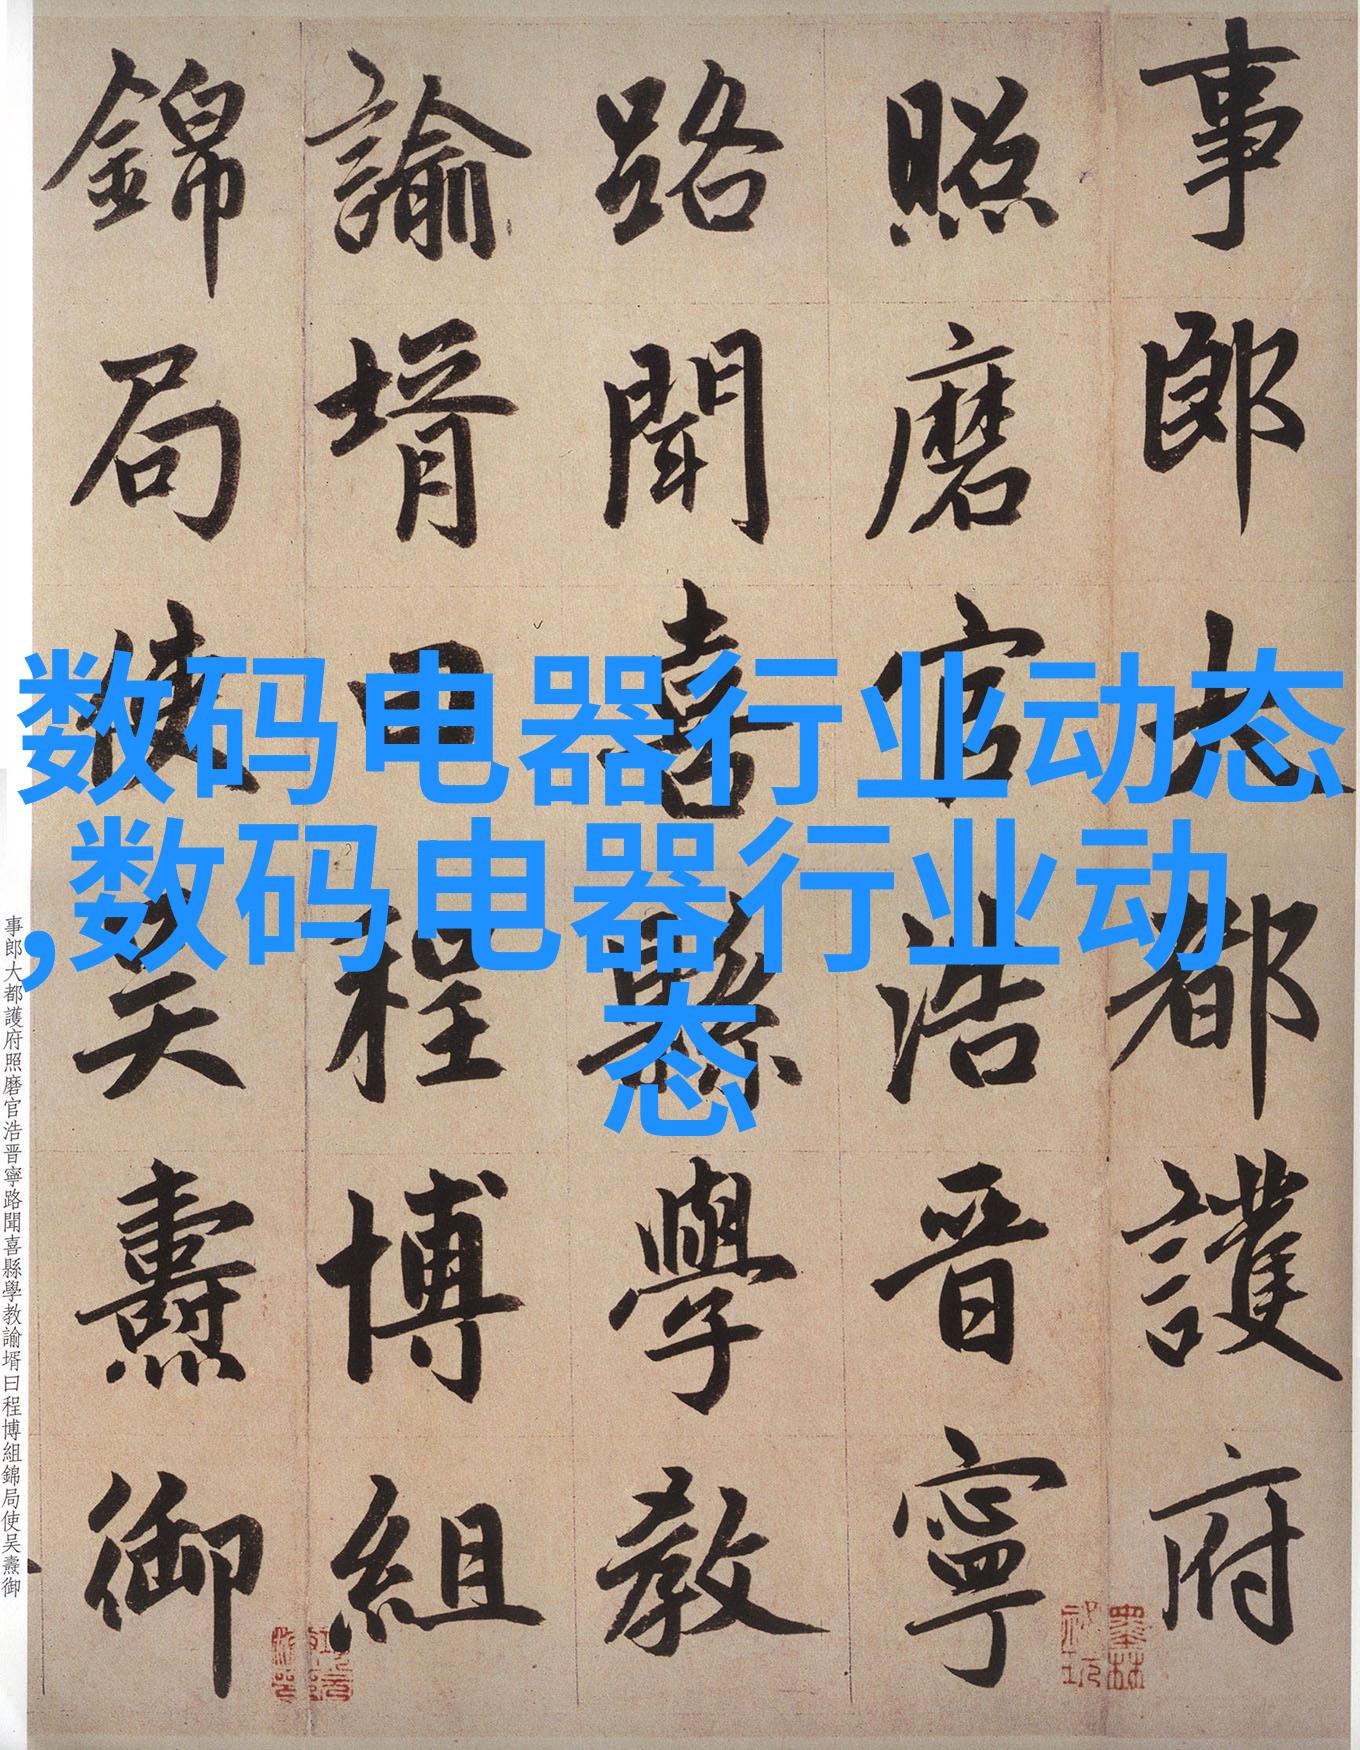 事郎大都護府
照磨官浩晋寧
路聞喜縣學教
諭壻曰程博組
錦局使吴燾御
数码电器行业动态
,数码电器行业动
态
事郎大都護府照磨官浩晋寧路聞喜縣學教諭壻曰程博組錦局使吴燾御